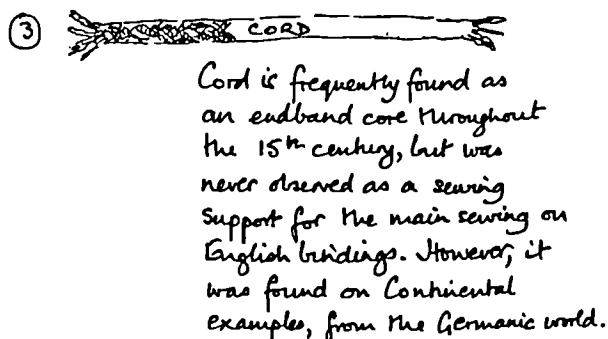 3 CORD
Cord is frequently found as
an endband core throughout
the 15th century, but was
never observed as a sewing
support for the main sewing on
English bindings. However, it
was found on Continental
examples, from the Germanic world.